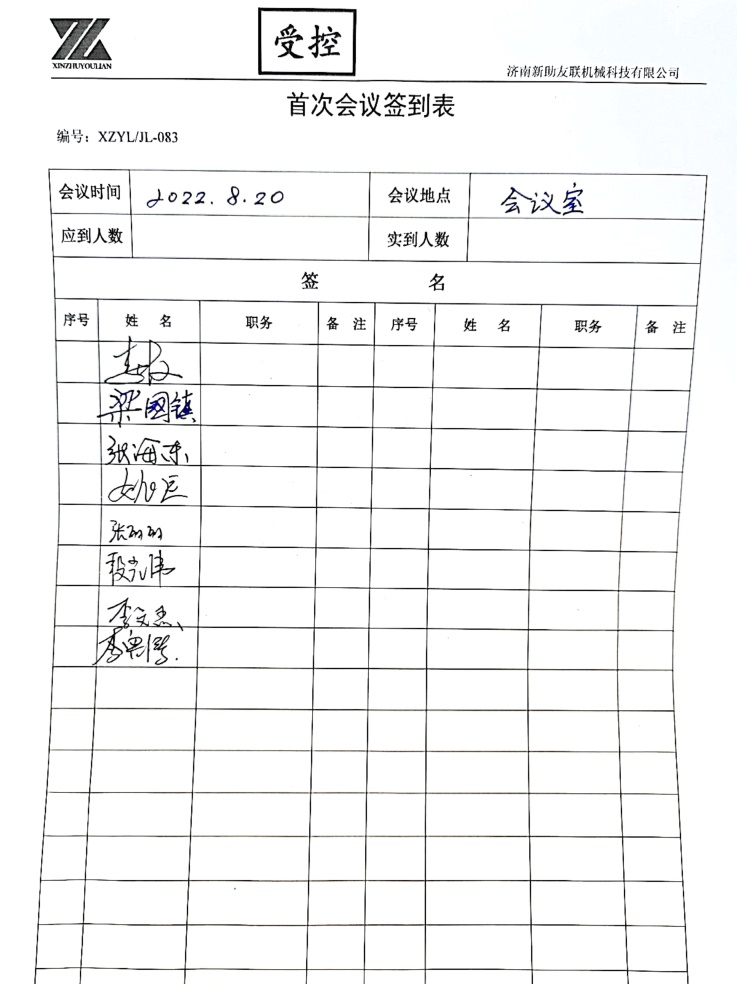 XINZHUYOULIAN
受控
济南新助友联机械科技有限公司
首次会议签到表
编号：XZYL/JL-083
会议时间 2022.8.20 会议地点 会议室
应到人数 实到人数
签 名
序号 姓 名 职务 备 注 序号 姓 名 职务 备 注
梁国镇
张海东
张丽丽
李文杰